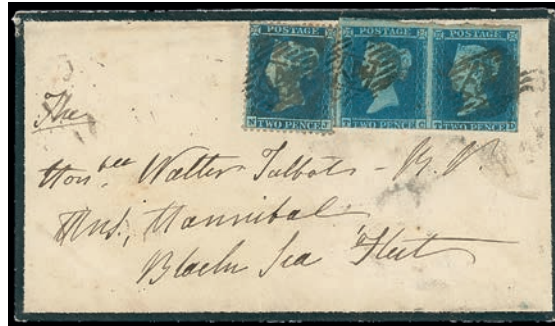 POSTAGE POSTAGE POSTAGE
TWO PENCE TWO PENCE TWO PENCE
The
Honble Walter Talbot - R.N.
Hannibal
Black Sea Fleet